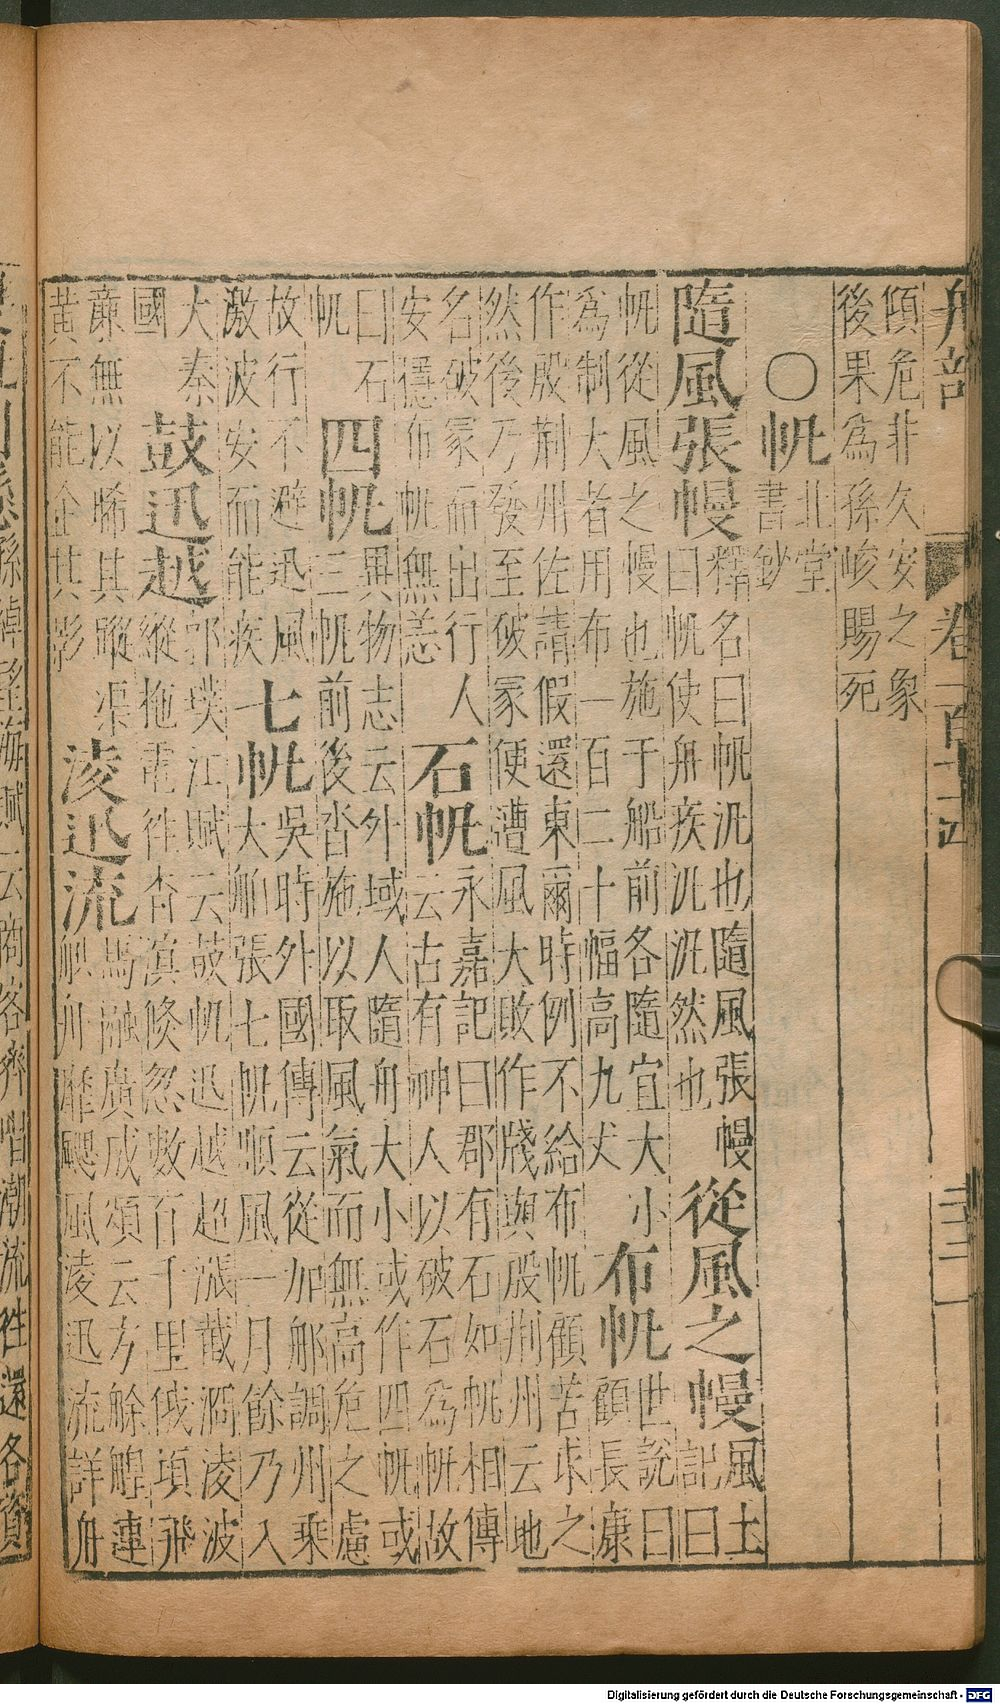 舟部 卷一百
傾危非久安之象
後果為孫峻賜死
○帆
北堂
書鈔
隨風張幔
釋名曰帆汎也隨風張幔
曰帆使舟疾汎汎然也
從風之幔
風土
記曰
帆從風之幔也施于船前各隨宜大小
為制大者用布一百二十幅高九丈
布帆
世說曰
顧長康
作殷荊州佐請假還東爾時例不給布帆顧苦求之
然後乃發至破冢便遭風大敗作牋與殷荊州云地
名破冢而出行人
安穩布帆無恙
石帆
永嘉記曰郡有石如帆相傳
云古有神人以破石為帆故
曰石
帆
四帆
異物志云外域人隨舟大小或作四帆或
三帆前後沓施以取風氣而無高危之慮
故行不避迅風
激波安而能疾
七帆
吳時外國傳云從加那調州乘
大舶張七帆順風一月餘乃入
大秦
國
鼓迅越
郭璞江賦云鼓帆迅越超漲截泂凌波
縱柂電往杳溟倏忽數百千里俄頃飛
廉無以睎其蹤渠
黃不能企其影
淩迅流
馬融廣成頌云方艅艎連
舼舟靡颸風淩迅流詳舟
孫綽望海賦云商客齊唱潮流往還各資
Digitalisierung gefördert durch die Deutsche Forschungsgemeinschaft - DFG